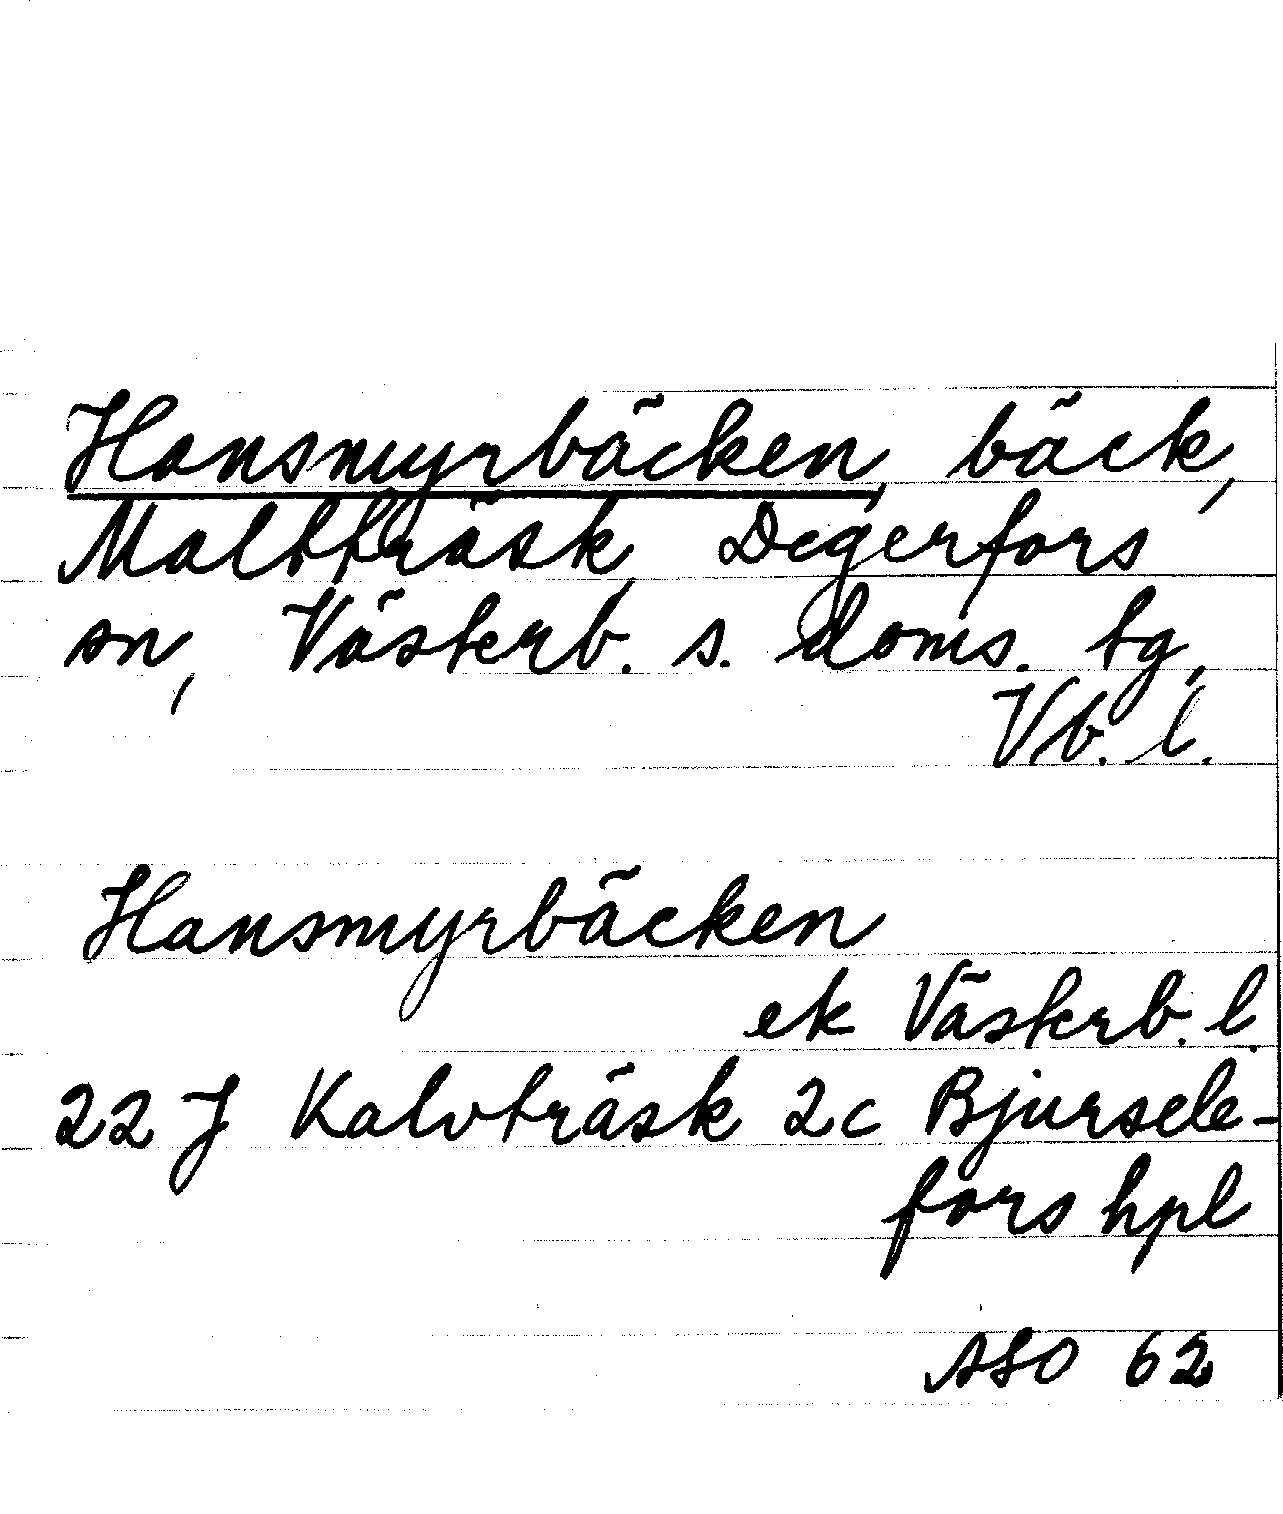 Hansmyrbäcken, bäck,
Maltträsk, Degerfors
sn, Västerb. s. doms. tg,
Vb. l.
Hansmyrbäcken
ek Västerb. l.
22 J Kalvträsk 2c Bjursele-
fors hpl
ASO 62